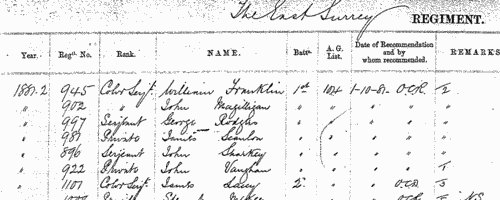 The East Surrey REGIMENT.
Year. Regtl. No. Rank. NAME. Battn. A. G. List. Date of Recommendation and by whom recommended. REMARKS
1881-2 945 Color Serjt. William Franklin 1st 104 1-10-81 O.C.R. 1/2
" 902 " John Magilligan " " " " "
" 997 Serjeant George Rodgers " " " " "
" 987 Private James Scanlon " " " "
" 896 Serjeant John Sharkey " " " "
" 922 Private John Vaughan " " " "
" 1101 Color Serjt. James Lacey 2 " " O.C.R.